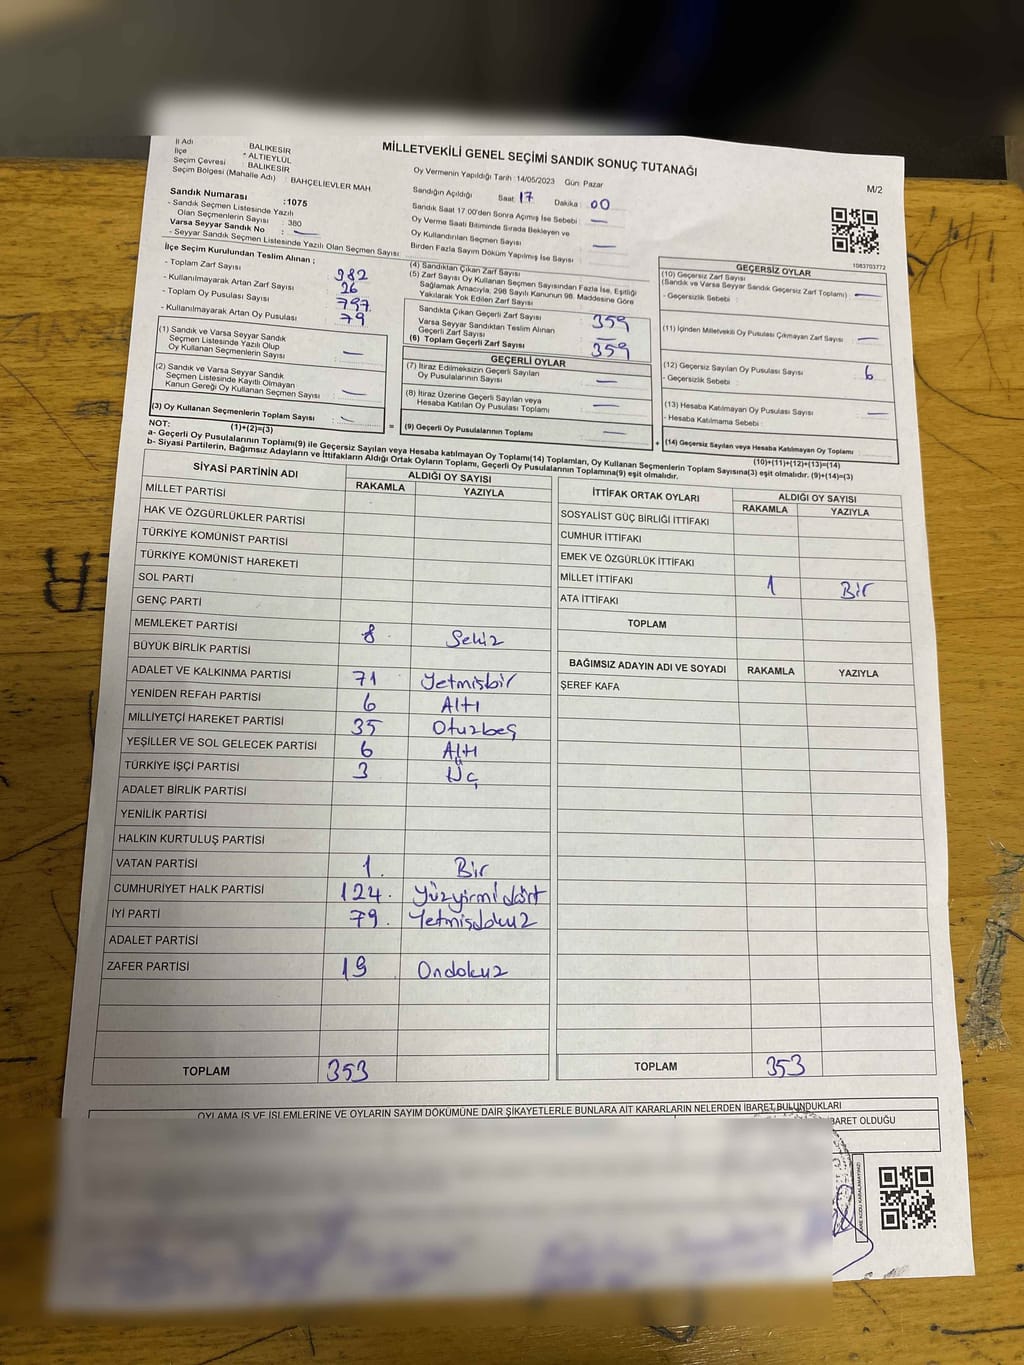 MİLLETVEKİLİ GENEL SEÇİMİ SANDIK SONUÇ TUTANAĞI
M/2
İl Adı BALIKESİR
İlçe * ALTIEYLÜL
Seçim Çevresi : BALIKESİR
Seçim Bölgesi (Mahalle Adı) : BAHÇELİEVLER MAH
Sandık Numarası :1075
- Sandık Seçmen Listesinde Yazılı
Olan Seçmenlerin Sayısı : 380
Varsa Seyyar Sandık No : —
- Seyyar Sandık Seçmen Listesinde Yazılı Olan Seçmen Sayısı:
Oy Vermenin Yapıldığı Tarih : 14/05/2023 Gün: Pazar
Sandığın Açıldığı Saat: 17 Dakika : 00
Sandık Saat 17.00'den Sonra Açımış İse Sebebi : —
Oy Verme Saati Bitiminde Sırada Bekleyen ve
Oy Kullandırılan Seçmen Sayısı —
Birden Fazla Sayım Döküm Yapılmış İse Sayısı :
1083703772
İlçe Seçim Kurulundan Teslim Alınan ;
- Toplam Zarf Sayısı 382
- Kullanılmayarak Artan Zarf Sayısı 26
- Toplam Oy Pusulası Sayısı 797
- Kullanılmayarak Artan Oy Pusulası 79
(1) Sandık ve Varsa Seyyar Sandık
Seçmen Listesinde Yazılı Olup
Oy Kullanan Seçmenlerin Sayısı —
(2) Sandık ve Varsa Seyyar Sandık
Seçmen Listesinde Kayıtlı Olmayan
Kanun Gereği Oy Kullanan Seçmen Sayısı —
(3) Oy Kullanan Seçmenlerin Toplam Sayısı : —
(1)+(2)=(3)
(4) Sandıktan Çıkan Zarf Sayısı
(5) Zarf Sayısı Oy Kullanan Seçmen Sayısından Fazla İse, Eşitliği
Sağlamak Amacıyla, 298 Sayılı Kanunun 98. Maddesine Göre
Yakılarak Yok Edilen Zarf Sayısı
Sandıkta Çıkan Geçerli Zarf Sayısı 359
Varsa Seyyar Sandıktan Teslim Alınan
Geçerli Zarf Sayısı —
(6) Toplam Geçerli Zarf Sayısı 359
GEÇERLİ OYLAR
(7) İtiraz Edilmeksizin Geçerli Sayılan
Oy Pusulalarının Sayısı —
(8) İtiraz Üzerine Geçerli Sayılan veya
Hesaba Katılan Oy Pusulası Toplamı —
= (9) Geçerli Oy Pusulalarının Toplamı —
GEÇERSİZ OYLAR
(10) Geçersiz Zarf Sayısı
(Sandık ve Varsa Seyyar Sandık Geçersiz Zarf Toplamı) : —
- Geçersizlik Sebebi :
(11) İçinden Milletvekili Oy Pusulası Çıkmayan Zarf Sayısı : —
(12) Geçersiz Sayılan Oy Pusulası Sayısı : 6
- Geçersizlik Sebebi :
(13) Hesaba Katılmayan Oy Pusulası Sayısı : —
- Hesaba Katılmama Sebebi :
+ (14) Geçersiz Sayılan veya Hesaba Katılmayan Oy Toplamı :
(10)+(11)+(12)+(13)=(14)
NOT:
a- Geçerli Oy Pusulalarının Toplamı(9) ile Geçersiz Sayılan veya Hesaba katılmayan Oy Toplamı(14) Toplamları, Oy Kullanan Seçmenlerin Toplam Sayısına(3) eşit olmalıdır. (9)+(14)=(3)
b- Siyasi Partilerin, Bağımsız Adayların ve İttifakların Aldığı Ortak Oyların Toplamı, Geçerli Oy Pusulalarının Toplamına(9) eşit olmalıdır.
SİYASİ PARTİNİN ADI ALDIĞI OY SAYISI
RAKAMLA YAZIYLA
MİLLET PARTİSİ
HAK VE ÖZGÜRLÜKLER PARTİSİ
TÜRKİYE KOMÜNİST PARTİSİ
TÜRKİYE KOMÜNİST HAREKETİ
SOL PARTİ
GENÇ PARTİ
MEMLEKET PARTİSİ 8 Sekiz
BÜYÜK BİRLİK PARTİSİ
ADALET VE KALKINMA PARTİSİ 71 Yetmişbir
YENİDEN REFAH PARTİSİ 6 Altı
MİLLİYETÇİ HAREKET PARTİSİ 35 Otuzbeş
YEŞİLLER VE SOL GELECEK PARTİSİ 6 Altı
TÜRKİYE İŞÇİ PARTİSİ 3 Üç
ADALET BİRLİK PARTİSİ
YENİLİK PARTİSİ
HALKIN KURTULUŞ PARTİSİ
VATAN PARTİSİ 1. Bir
CUMHURİYET HALK PARTİSİ 124. Yüzyirmidört
İYİ PARTİ 79. Yetmişdokuz
ADALET PARTİSİ
ZAFER PARTİSİ 19 Ondokuz
TOPLAM 353
İTTİFAK ORTAK OYLARI ALDIĞI OY SAYISI
RAKAMLA YAZIYLA
SOSYALİST GÜÇ BİRLİĞİ İTTİFAKI
CUMHUR İTTİFAKI
EMEK VE ÖZGÜRLÜK İTTİFAKI
MİLLET İTTİFAKI 1 Bir
ATA İTTİFAKI
TOPLAM
BAĞIMSIZ ADAYIN ADI VE SOYADI RAKAMLA YAZIYLA
ŞEREF KAFA
TOPLAM 353
OYLAMA İŞ VE İŞLEMLERİNE VE OYLARIN SAYIM DÖKÜMÜNE DAİR ŞİKAYETLERLE BUNLARA AİT KARARLARIN NELERDEN İBARET BULUNDUKLARI
BARET OLDUĞU